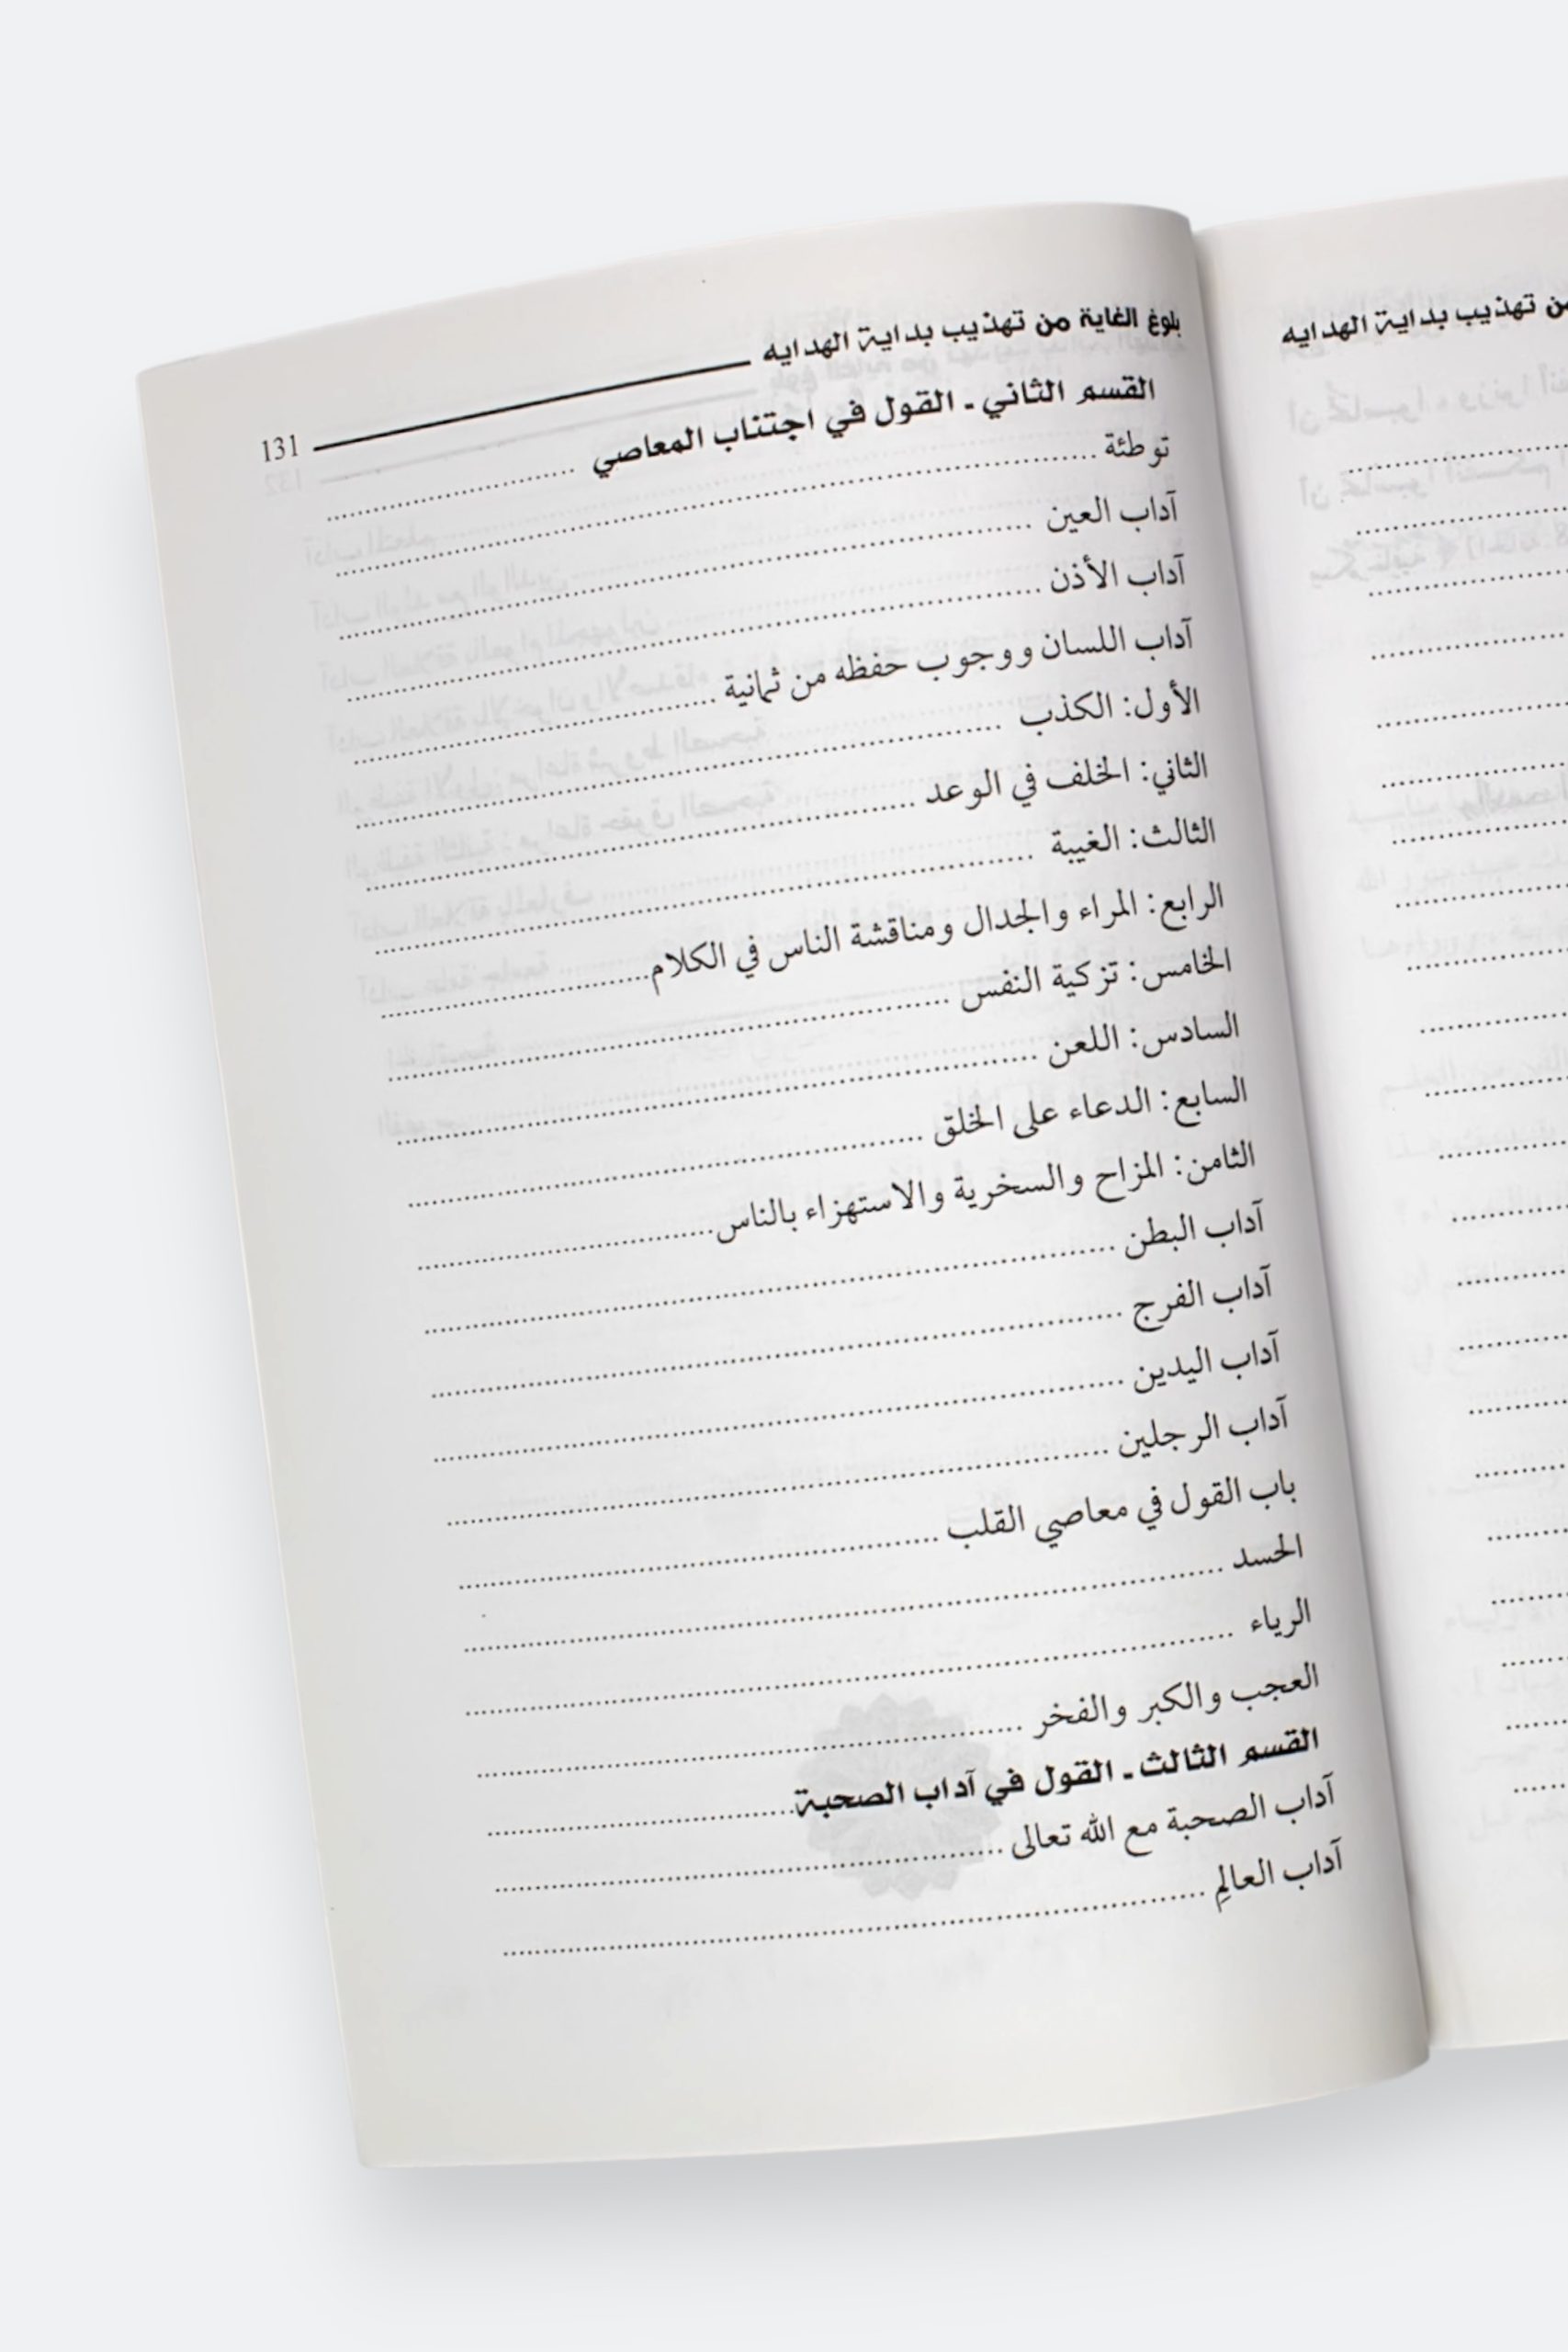 بلوغ الغاية من تهذيب بداية الهدايه
131
القسم الثاني - القول في اجتناب المعاصي
توطئة
آداب العين
آداب الأذن
آداب اللسان ووجوب حفظه من ثمانية
الأول: الكذب
الثاني: الخلف في الوعد
الثالث: الغيبة
الرابع: المراء والجدال ومناقشة الناس في الكلام
الخامس: تزكية النفس
السادس: اللعن
السابع: الدعاء على الخلق
الثامن: المزاح والسخرية والاستهزاء بالناس
آداب البطن
آداب الفرج
آداب اليدين
آداب الرجلين
باب القول في معاصي القلب
الحسد
الرياء
العجب والكبر والفخر
القسم الثالث - القول في آداب الصحبة
آداب الصحبة مع الله تعالى
آداب العالِم
من تهذيب بداية الهدايه